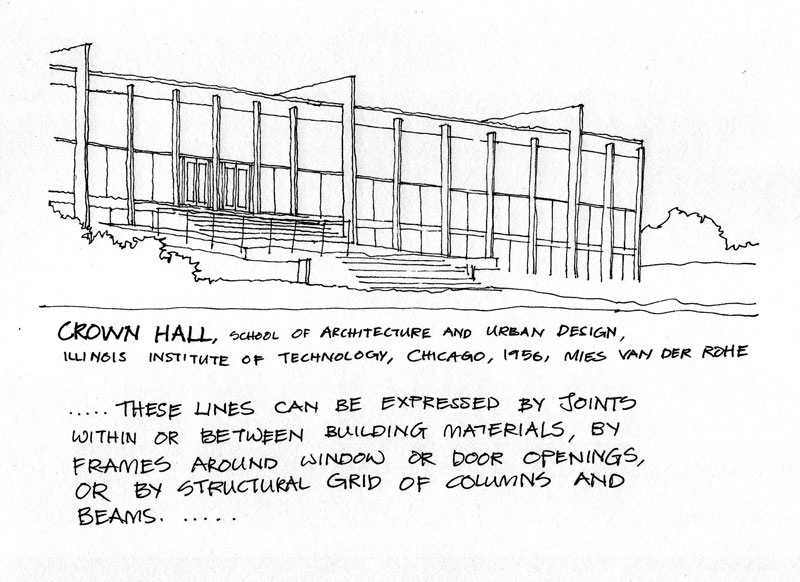 CROWN HALL, SCHOOL OF ARCHITECTURE AND URBAN DESIGN,
ILLINOIS INSTITUTE OF TECHNOLOGY, CHICAGO, 1956, MIES VAN DER ROHE
..... THESE LINES CAN BE EXPRESSED BY JOINTS
WITHIN OR BETWEEN BUILDING MATERIALS, BY
FRAMES AROUND WINDOW OR DOOR OPENINGS,
OR BY STRUCTURAL GRID OF COLUMNS AND
BEAMS. .....